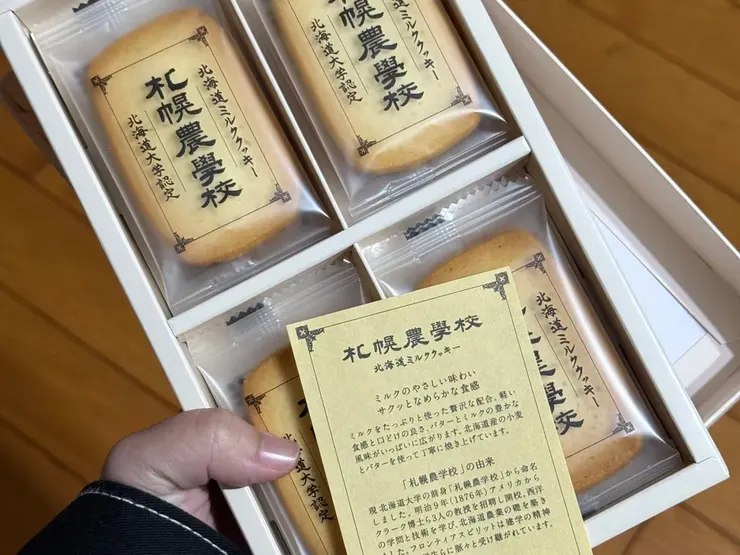 北海道ミルククッキー
札幌農學校
北海道大学認定
北海道ミルククッキー
札幌農學校
北海道大学認定
北海道ミルククッキー
北海道大学認定
北海道ミルククッキー
札幌農學校
北海道ミルククッキー
ミルクのやさしい味わい
サクッとなめらかな食感
ミルクをたっぷりと使った贅沢な配合。軽い
食感と口どけの良さ、バターとミルクの豊かな
風味がいっぱいに広がります。北海道産の小麦
とバターを使って丁寧に焼き上げています。
「札幌農学校」の由来
現 北海道大学の前身「札幌農学校」から命名
しました。明治9年(1876年)アメリカから
クラーク博士ら3人の教授を招聘し開校。西洋
の学問と技術を学び、北海道農業の礎を築き
ました。フロンティアスピリットは建学の精神
脈々と受け継がれています。